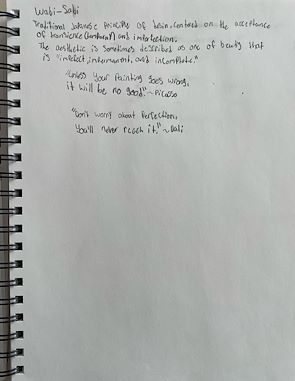 Wabi-Sabi
Traditional Japanese Principle of being centered on the acceptance
of transience (temporary) and imperfection.
The aesthetic is sometimes described as one of beauty that
is "imperfect, impermanent, and incomplete."
"Unless your Painting goes wrong,
it will be no good." ~ Picasso
"Don't worry about Perfection,
You'll never reach it." ~ Dali